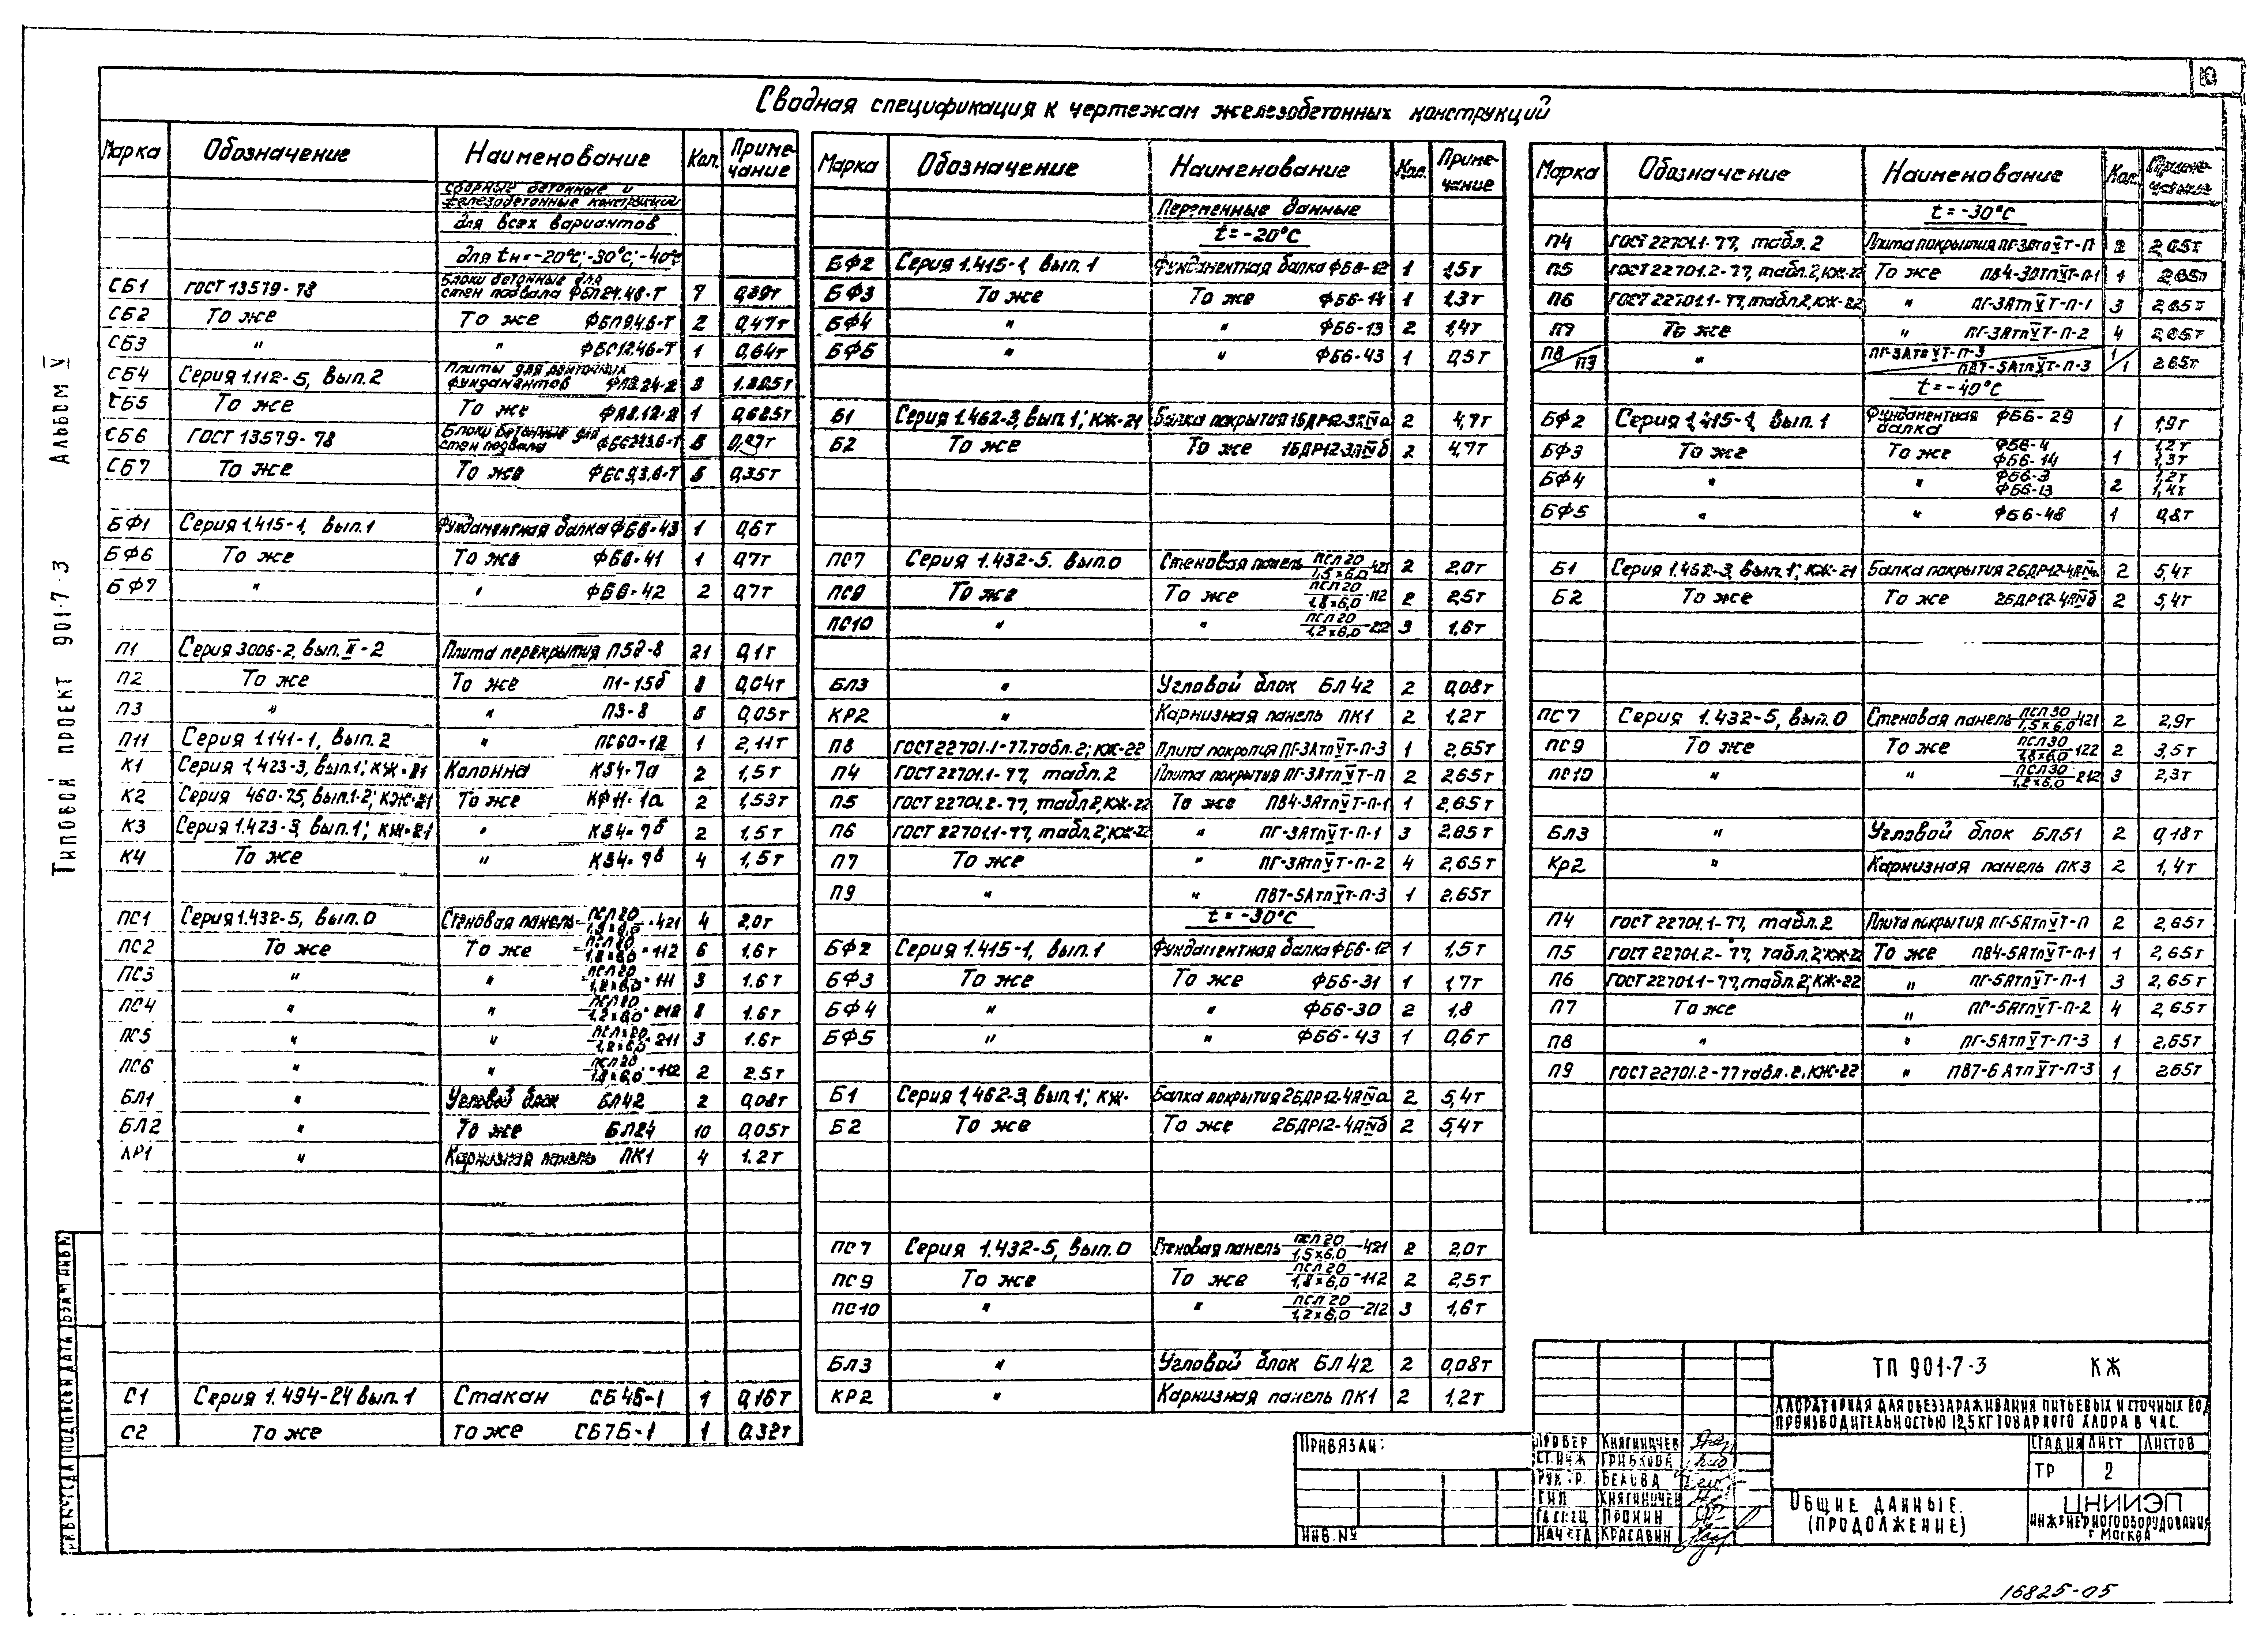 10
Сводная спецификация к чертежам железобетонных конструкций
Марка Обозначение Наименование Кол. Примечание
сборные бетонные и
железобетонные конструкции
для всех вариантов
для tн=-20°С; -30°С; -40°С
СБ1 ГОСТ 13579-78 Блоки бетонные для стен подвала 7
СБ2 То же То же 2 0,47т
СБ3 " " ФБС12.4.6-Т 1 0,64т
СБ4 Серия 1.112-5, вып.2 Плиты для ленточных фундаментов 3
СБ5 То же То же 1 0,685т
СБ6 ГОСТ 13579-78 Блоки бетонные для стен подвала 5
СБ7 То же То же 5 0,35т
БФ1 Серия 1.415-1, вып.1 Фундаментная балка ФБ6-43 1 0,6т
БФ6 То же То же ФБ6-41 1 0,7т
БФ7 " " ФБ6-42 2 0,7т
П1 Серия 3006-2, вып.II-2 Плита перекрытия П5д-8 21 0,1т
П2 То же То же П1-15б 8 0,04т
П3 " " П3-8 6 0,05т
П11 Серия 1.141-1, вып.2 " ПС60-12 1 2,11т
К1 Серия 1.423-3, вып.1; КЖ-21 Колонна К54-7а 2 1,5т
К2 Серия 460-75, вып.1-2; КЖ-21 То же КФ11-1а 2 1,53т
К3 Серия 1.423-3, вып.1; КЖ-21 " К54-7б 2 1,5т
К4 То же " 4 1,5т
ПС1 Серия 1.432-5, вып.0 Стеновая панель ПСЛ20/1,5×6,0-421 4 2,0т
ПС2 То же То же ПСЛ20/1,2×6,0-112 6 1.6т
ПС3 " " ПСЛ20/1,2×6,0-111 3 1.6т
ПС4 " " ПСЛ20/1,2×6,0-212 8 1.6т
ПС5 " " ПСЛ20/1,2×6,0-211 3 1.6т
ПС6 " " ПСЛ20/1,8×6,0-112 2 2.5т
БЛ1 " Угловой блок БЛ42 2 0,08т
БЛ2 " То же БЛ24 10 0,05т
КР1 " Карнизная панель ПК1 4 1.2т
С1 Серия 1.494-24 вып.1 Стакан СБ4Б-1 1 0,16т
С2 То же То же СБ7Б-1 1 0.32т
Марка Обозначение Наименование Кол. Примечание
Переменные данные
t=-20°С
БФ2 Серия 1.415-1, вып.1 Фундаментная балка ФБ6-12 1 1,5т
БФ3 То же То же ФБ6-14 1 1,3т
БФ4 " " ФБ6-13 2 1,4т
БФ5 " " ФБ6-43 1 0,5т
Б1 Серия 1.462-3, вып.1; КЖ-21 Балка покрытия 1БДР12-3АIVа 2 4,7т
Б2 То же То же 1БДР12-3АIVб 2 4,7т
ПС7 Серия 1.432-5. вып.0 Стеновая панель ПСЛ20/1,5×6,0-421 2 2,0т
ПС9 То же То же ПСЛ20/1,8×6,0-112 2 2,5т
ПС10 " " ПСЛ20/1,2×6,0-212 3 1,6т
БЛ3 " Угловой блок БЛ42 2 0,08т
КР2 " Карнизная панель ПК1 2 1,2т
П8 ГОСТ 22701.1-77. табл.2; КЖ-22 Плита покрытия ПГ-3АтпVТ-П-3 1 2,65т
П4 ГОСТ 22701.1-77, табл.2 Плита покрытия ПГ-3АтпVТ-П 2 2,65т
П5 ГОСТ 22701.2-77, табл.2, КЖ-22 То же ПВ4-3АтпVТ-П-1 1 2,65т
П6 ГОСТ 22701.1-77, табл.2; КЖ-22 " ПГ-3АтпVТ-П-1 3 2,65т
П7 То же " ПГ-3АтпVТ-П-2 4 2,65т
П9 " " ПВ7-5АтпVТ-П-3 1 2.65т
t=-30°С
БФ2 Серия 1.415-1, вып.1 Фундаментная балка ФБ6-12 1 1,5т
БФ3 То же То же ФБ6-31 1 1,7т
БФ4 " " ФБ6-30 2 1,8
БФ5 " " ФБ6-43 1 0,6т
Б1 Серия 1.462-3, вып.1; КЖ- Балка покрытия 2БДР12-4АIVа 2 5,4т
Б2 То же То же 2БДР12-4АIVб 2 5,4т
ПС7 Серия 1.432-5, вып.0 Стеновая панель ПСЛ20/1,5×6,0-421 2 2,0т
ПС9 То же То же ПСЛ20/1,8×6,0-112 2 2,5т
ПС10 " " ПСЛ20/1,2×6,0-212 3 1,6т
БЛ3 " Угловой блок БЛ42 2 0,08т
КР2 " Карнизная панель ПК1 2 1,2т
Марка Обозначение Наименование Кол. Примечание
t=-30°С
П4 ГОСТ 22701.1-77, табл.2 Плита покрытия ПГ-3АтпVТ-П 2 2,65т
П5 ГОСТ 22701.2-77, табл.2, КЖ-22 То же ПВ4-3АтпVТ-П-1 1 2,65т
П6 ГОСТ 22701.1-77, табл.2, КЖ-22 " ПГ-3АтпVТ-П-1 3 2,65т
П7 То же " ПГ-3АтпVТ-П-2 4 2,65т
П8/П9 " ПГ-3АтпVТ-П-3/ПВ7-5АтпVТ-П-3 1/1 2,65т
t=-40°С
БФ2 Серия 1.415-1, вып.1 Фундаментная балка ФБ6-29 1 1,9т
БФ3 То же То же ФБ6-4 ФБ6-14 1 1,2т 1,3т
БФ4 " " ФБ6-3 ФБ6-13 2 1,2т 1,4т
БФ5 " " ФБ6-48 1 0,8т
Б1 Серия 1.462-3, вып.1; КЖ-21 Балка покрытия 2БДР12-4АIVа 2 5,4т
Б2 То же То же 2БДР12-4АIVб 2 5,4т
ПС7 Серия 1.432-5, вып.0 Стеновая панель ПСЛ30/1,5×6,0-421 2 2,9т
ПС9 То же То же ПСЛ30/1,8×6,0-122 2 3,5т
ПС10 " " ПСЛ30/1,2×6,0-212 3 2,3т
БЛ3 " Угловой блок БЛ51 2 0,18т
Кр2 " Карнизная панель ПК3 2 1,4т
П4 ГОСТ 22701.1-77, табл.2 Плита покрытия ПГ-5АтпVТ-П 2 2,65т
П5 ГОСТ 22701.2-77, табл.2; КЖ-22 То же ПВ4-5АтпVТ-П-1 1 2,65т
П6 ГОСТ 22701.1-77, табл.2; КЖ-22 " ПГ-5АтпVТ-П-1 3 2,65т
П7 То же " ПГ-5АтпVТ-П-2 4 2,65т
П8 " " ПГ-5АтпVТ-П-3 1 2,65т
П9 ГОСТ 22701.2-77 табл.2. КЖ-22 " ПВ7-6АтпVТ-П-3 1 2.65т
Типовой проект 901-7-3 Альбом V
Привязан:
Инв.№
Провер Княгиничев
Ст.инж Грибкова
Рук.гр. Белова
ГИП Княгиничев
Гл.спец Пронин
Нач.отд Красавин
ТП 901-7-3 КЖ
Хлораторная для обеззараживания питьевых и сточных вод
производительностью 12,5кг товарного хлора в час.
Стадия Лист Листов
ТР 2
Общие данные.
(продолжение)
ЦНИИЭП
инженерного оборудования
г. Москва
16825-05